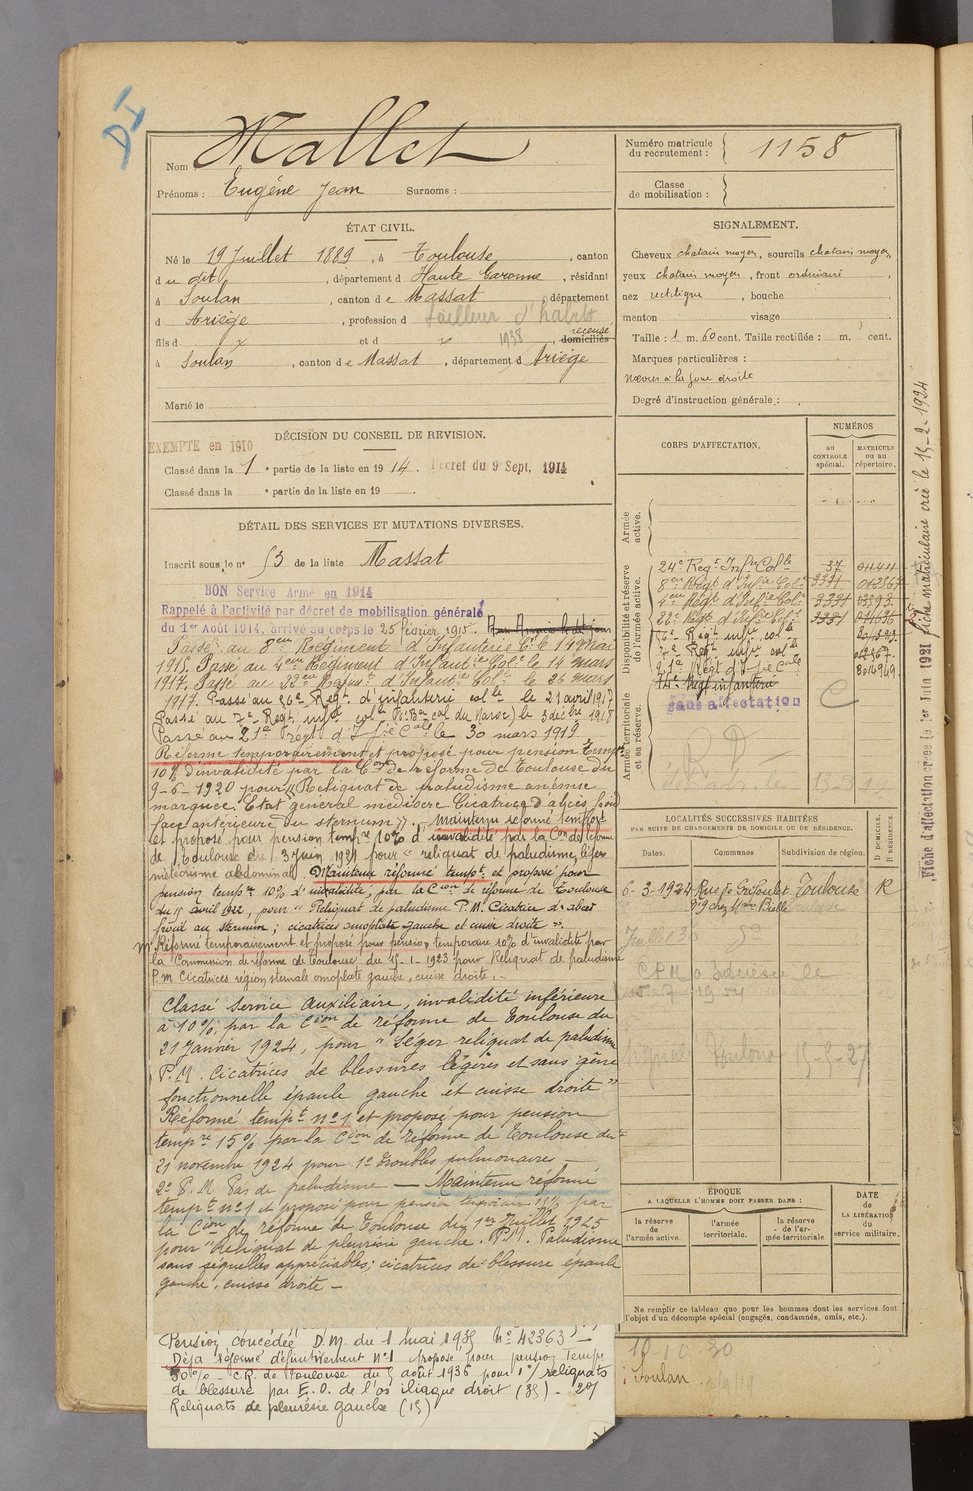 DI
Nom : Mallet
Prénoms : Eugène Jean Surnoms :
Numéro matricule du recrutement : 1158
Classe de mobilisation :
ÉTAT CIVIL.
Né le 19 Juillet 1889, à Toulouse, canton
du dit, département d Haute Garonne, résidant
à Soulan, canton de Massat, département
d Ariège, profession d tailleur d'habits
fils d x et d 1938, recensé domiciliés
à Soulan, canton de Massat, département d Ariège
Marié le
SIGNALEMENT.
Cheveux chatain moyen, sourcils chatain moyen,
yeux chatain moyen, front ordinaire
nez rectiligne, bouche
menton visage
Taille : 1 m. 60 cent. Taille rectifiée : m. cent.
Marques particulières :
Nœvres à la joue droite
Degré d'instruction générale :
EXEMPTÉ en 1910
DÉCISION DU CONSEIL DE REVISION.
Classé dans la 1e partie de la liste en 1914. Décret du 9 Sept. 1914
Classé dans la e partie de la liste en 19
DÉTAIL DES SERVICES ET MUTATIONS DIVERSES.
Inscrit sous le n° 53 de la liste Massat
BON Service Armé en 1914
Rappelé à l'activité par décret de mobilisation générale
du 1er Août 1914, arrivé au corps le 25 février 1915.
Passé au 8em Régiment d'Infanterie Cle le 14 mai
1915. Passé au 4em Régiment d'Infantie Cole le 14 mars
1917. Passé au 22em Régimt d'Infantie Cole le 26 mars
1917. Passé au 56e Regt d'infanterie colle le 21 avril 1917
Passé au 7e Regt infie colle (Bon col du Maroc) le 3 décbre 1918
Passé au 21e régt d'Infie Cale le 30 mars 1919.
Réformé temporairement et proposé pour pension Tempre
10% d'invalidité par la Con de réforme de Toulouse du
9-6-1920 pour "Reliquat de paludisme anémie
marquée. Etat général médiocre Cicatrice d'abcès froid
face antérieure du sternum". Maintenu réformé tempore
et proposé pour pension tempre 10% d'invalidité par la Con de réforme
de Toulouse du 3 Juin 1921 pour "reliquat de paludisme, léger
météorisme abdominal. Maintenu réformé tempt et proposé pour
pension tempre 10% d'invalidité, par la Cion de réforme de Toulouse
du 15 avril 1922, pour "Reliquat de paludisme P.M. Cicatrice d'abcès
froid au sternum ; cicatrices omoplate gauche et cuisse droite".
Mt Réformé temporairement et proposé pour pension temporaire 10% d'invalidité par
la Commission de réforme de Toulouse du 15-1-1923 pour Reliquat de paludisme
P.M Cicatrices région sternale omoplate gauche, cuisse droite.
Classé Service Auxiliaire, invalidité inférieure
à 10%, par la Cion de réforme de Toulouse du
21 Janvier 1924, pour "Léger reliquat de paludisme
P.M. Cicatrices de blessures légères et sans gêne
fonctionnelle épaule gauche et cuisse droite"
Réformé tempt n° 1 et proposé pour pension
tempre 15% par la Cion de réforme de Toulouse du
21 novembre 1924 pour 1° troubles pulmonaires
2° P.M. Pas de paludisme — Maintenu réformé
tempt n° 1 et proposé pour pension temporaire par
la Cion de réforme de Toulouse du 1er Juillet 1925
pour "Reliquat de pleurésie gauche. P.M. Paludisme
sans séquelles appréciables ; cicatrices de blessure épaule
gauche, cuisse droite —
Pension concédée D.M. du 1 mai 1935 N° 42363
Déjà réformé définitivement N° 1 proposé pour pension Tempe
30% - C.R. de Toulouse du 5 août 1936 pour 1°/ reliquats
de blessure par E.O. de l'os iliaque droit (35) - 2°/
Reliquats de pleurésie gauche (15)
CORPS D'AFFECTATION.
NUMÉROS
AU CONTROLE spécial.
MATRICULE OU AU répertoire.
Armée active.
Disponibilité et réserve de l'armée active.
24e Regt Infie Colle 37 01411
8em Regt d'Infie Cole 3331
4em Regt d'Infie Cole 3331
22e Regt d'Infie Cole 3331
56e Regt infie colle
7e Regt infie colle
21e Régt d'Infie Cale
14e Regt infanterie
Armée territoriale et sa réserve.
sans affectation C
LOCALITÉS SUCCESSIVES HABITÉES
PAR SUITE DE CHANGEMENTS DE DOMICILE OU DE RÉSIDENCE.
Dates. Communes Subdivision de région. D DOMICILE. R RÉSIDENCE.
6-3-1924 Toulouse R
Juillet 36 do
ÉPOQUE
A LAQUELLE L'HOMME DOIT PASSER DANS :
la réserve de l'armée active.
l'armée territoriale.
la réserve de l'armée territoriale
DATE de LA LIBÉRATION du service militaire.
Ne remplir ce tableau que pour les hommes dont les services font
l'objet d'un décompte spécial (engagés, condamnés, omis, etc.).
Soulan
Fiche d'affectation créée le 1er Juin 1921
fiche matriculaire crée le 15-2-1924